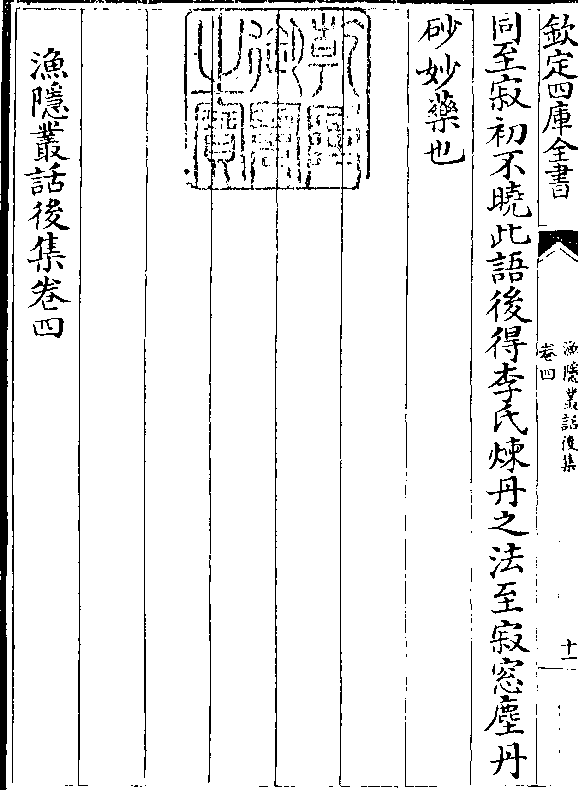 欽定四庫全書
漁隱叢話後集
卷四
十一
同至寂初不曉此語後得李氏煉丹之法至寂窓塵丹
砂妙藥也
乾隆御覽之寶
漁隱叢話後集卷四